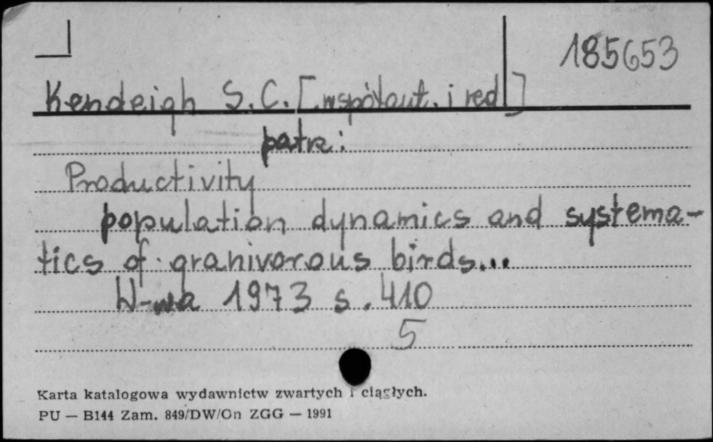 185653
Kendeigh S.C. [współaut. i red]
patrz:
Productivity
population dynamics and systema-
tics of granivorous birds...
W-wa 1973 s. 410
5
Karta katalogowa wydawnictw zwartych i ciągłych.
PU — B144 Zam. 849/DW/On ZGG — 1991